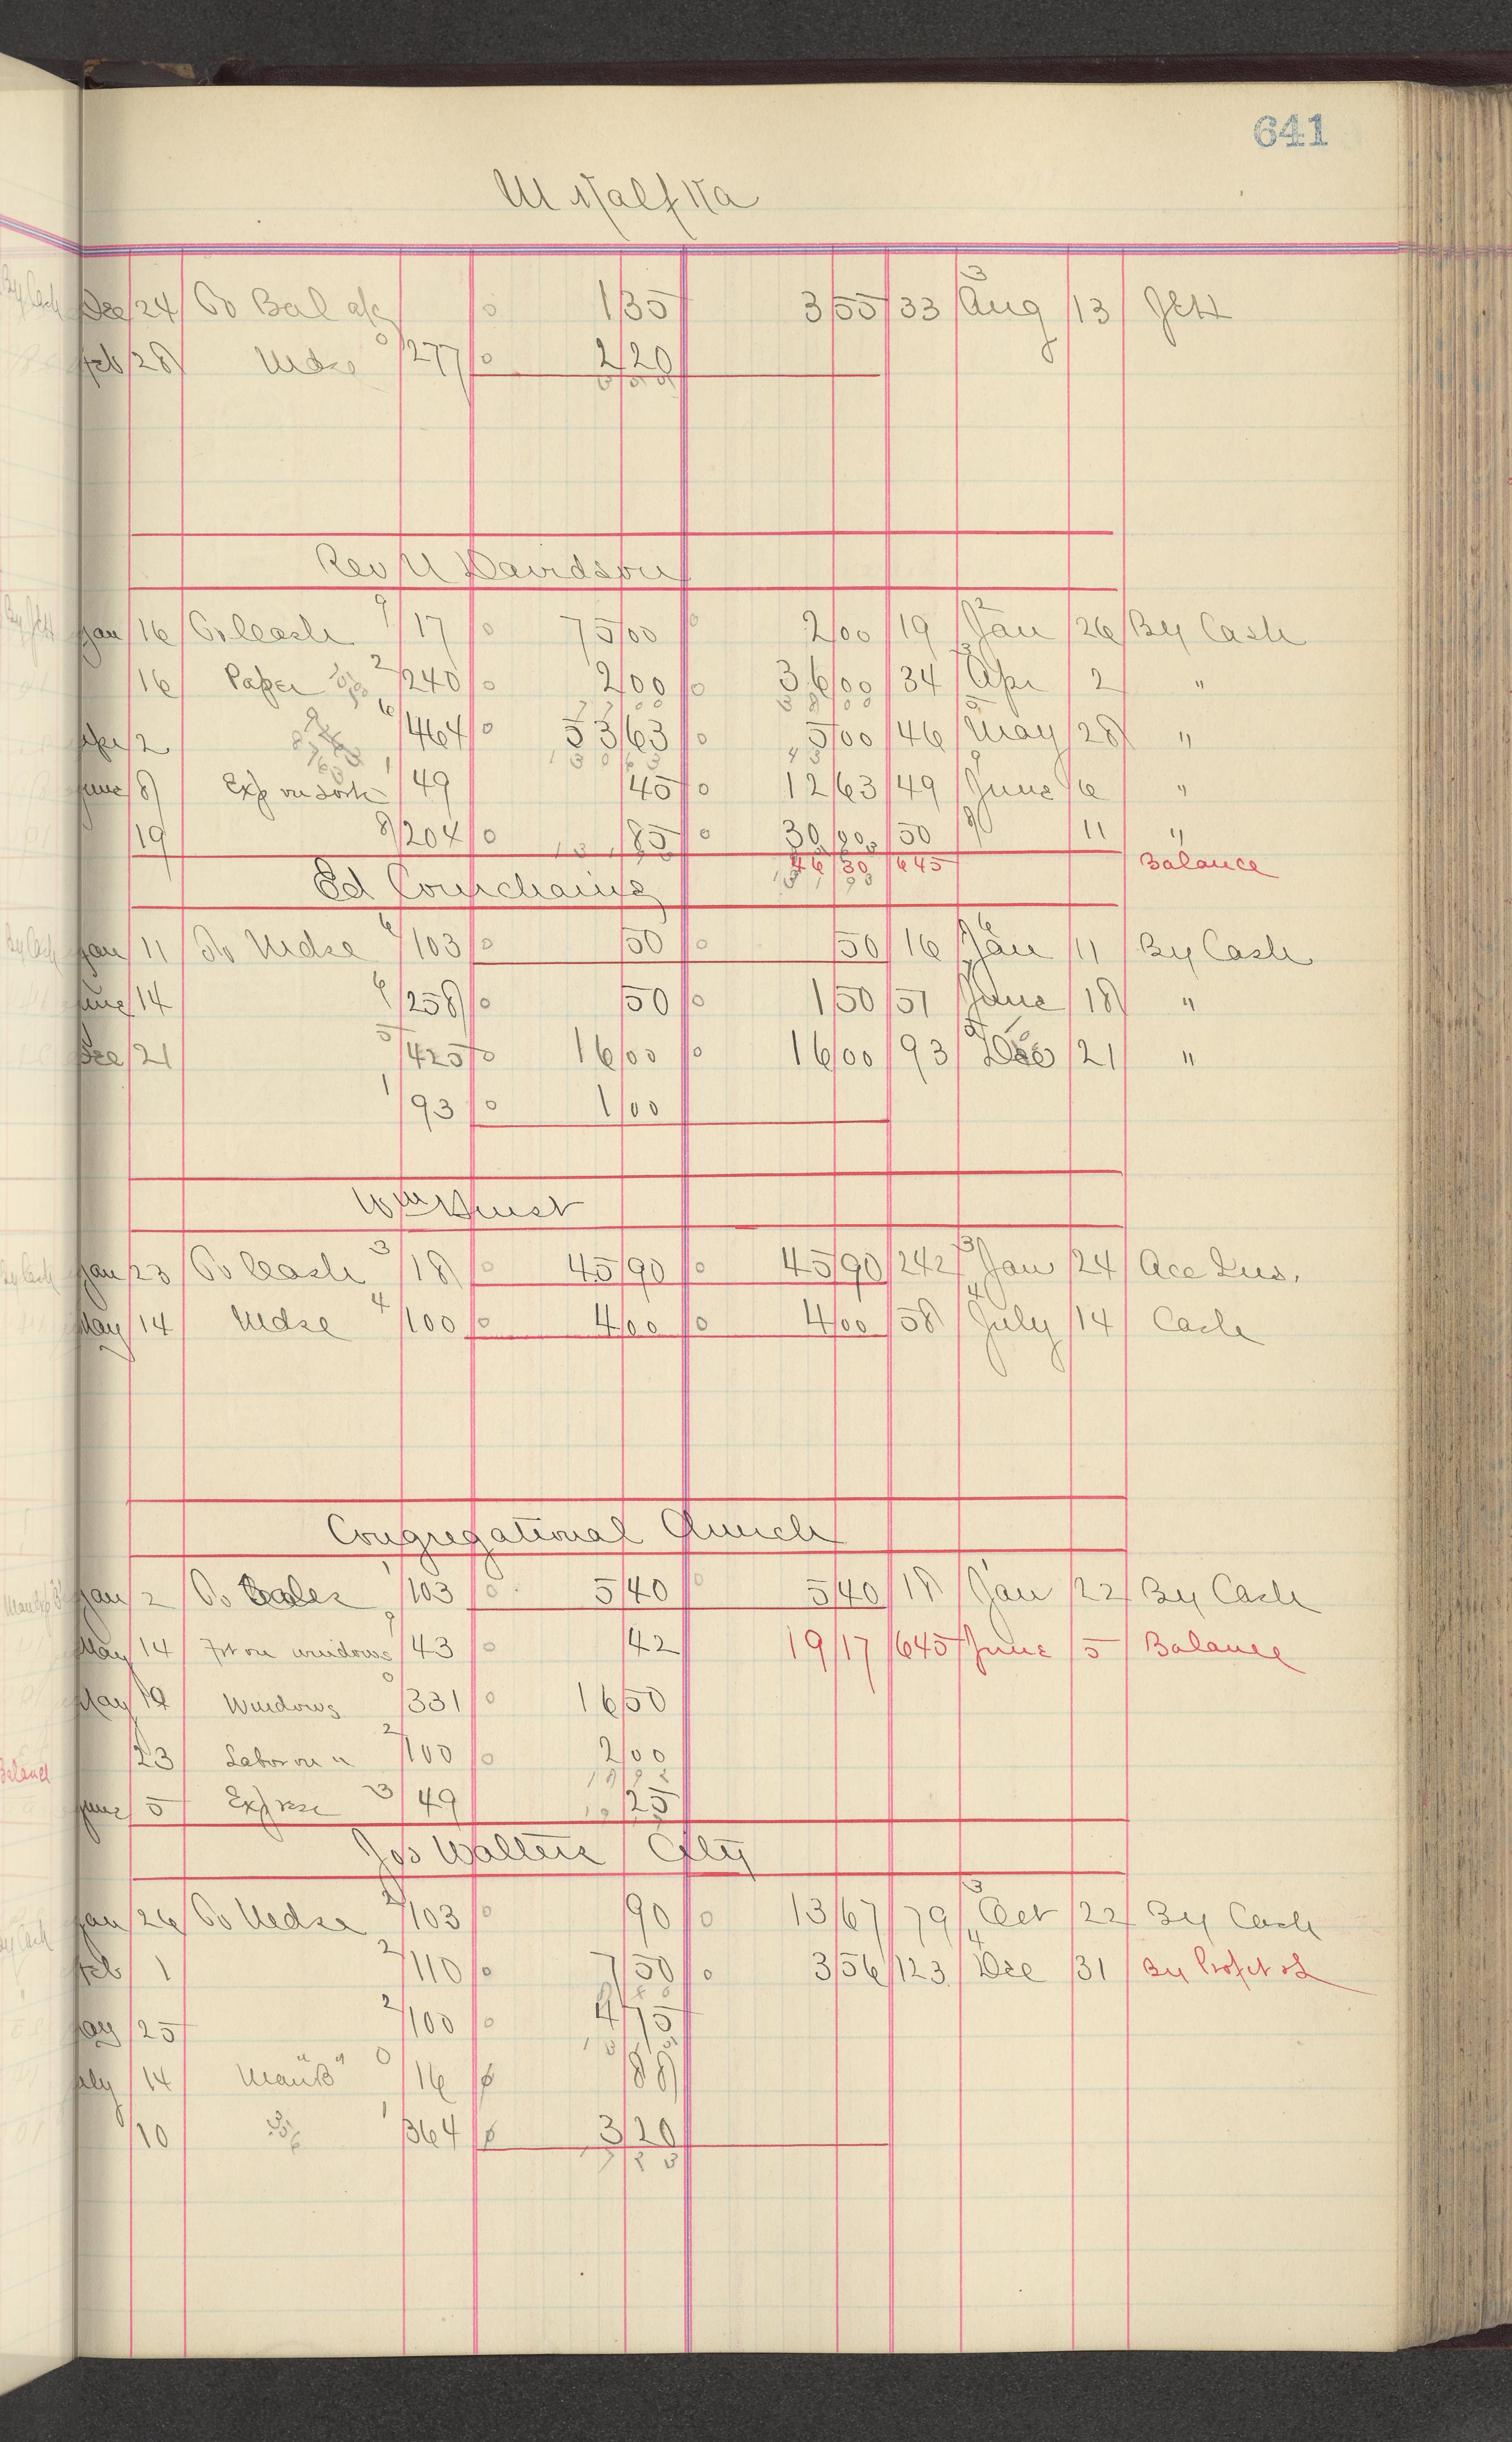 641
Dec 24 To Bal a/c 0 1 35 3 55 33 3 Aug 13 JEH
Feb 28 Mdse 0 277 0 2 20
Rev M Davidson
Jan 16 To Cash 9 17 0 75 00 0 2 00 19 2 Jan 26 By Cash
16 Paper 2 240 0 2 00 0 36 00 34 Apr 2 "
Apr 2 6 464 0 53 63 0 5 00 46 May 28 "
June 8 Exp on 1 49 45 0 12 63 49 June 6 "
19 8 204 0 85 0 30 00 50 11 "
46 30 645 Balance
Ed Courchaine
Jan 11 To Mdse 6 103 0 50 0 50 16 6 Jan 11 By Cash
June 14 6 258 0 50 0 1 50 51 June 18 "
Dec 21 5 425 0 16 00 0 16 00 93 Dec 21 "
1 93 0 1 00
Wm
Jan 23 To Cash 3 18 0 45 90 0 45 90 242 3 Jan 24 Ace Ins.
May 14 Mdse 4 100 0 4 00 0 4 00 58 4 July 14 Cash
Congregational Church
Jan 2 To 1 103 0 5 40 0 5 40 18 Jan 22 By Cash
May 14 Frt on windows 9 43 0 42 19 17 645 June 5 Balance
May 19 Windows 0 331 0 16 50
23 Labor on " 2 100 0 2 00
June 5 Express 3 49 25
Jos Walters City
Jan 26 To Mdse 2 103 0 90 0 13 67 79 3 Oct 22 By Cash
Feb 1 2 110 0 7 50 0 3 56 123 4 Dec 31 By Profit &L
May 25 2 100 0 4 75
July 14 "ManB" 0 16 0 88
10 1 364 0 3 20